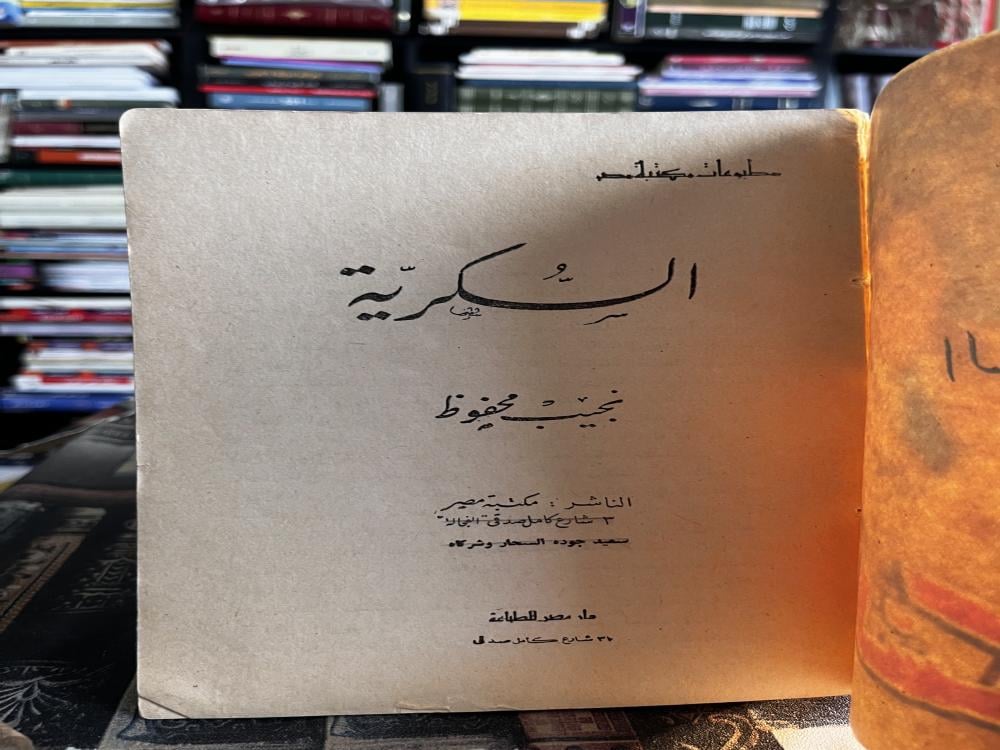 مطبوعات مكتبة مصر
السُّكريّة
نجيب محفوظ
الناشر : مكتبة مصر
٣ شارع كامل صدقى الفجالة
سعيد جوده السحار وشركاه
دار مصر للطباعة
٣٧ شارع كامل صدقى